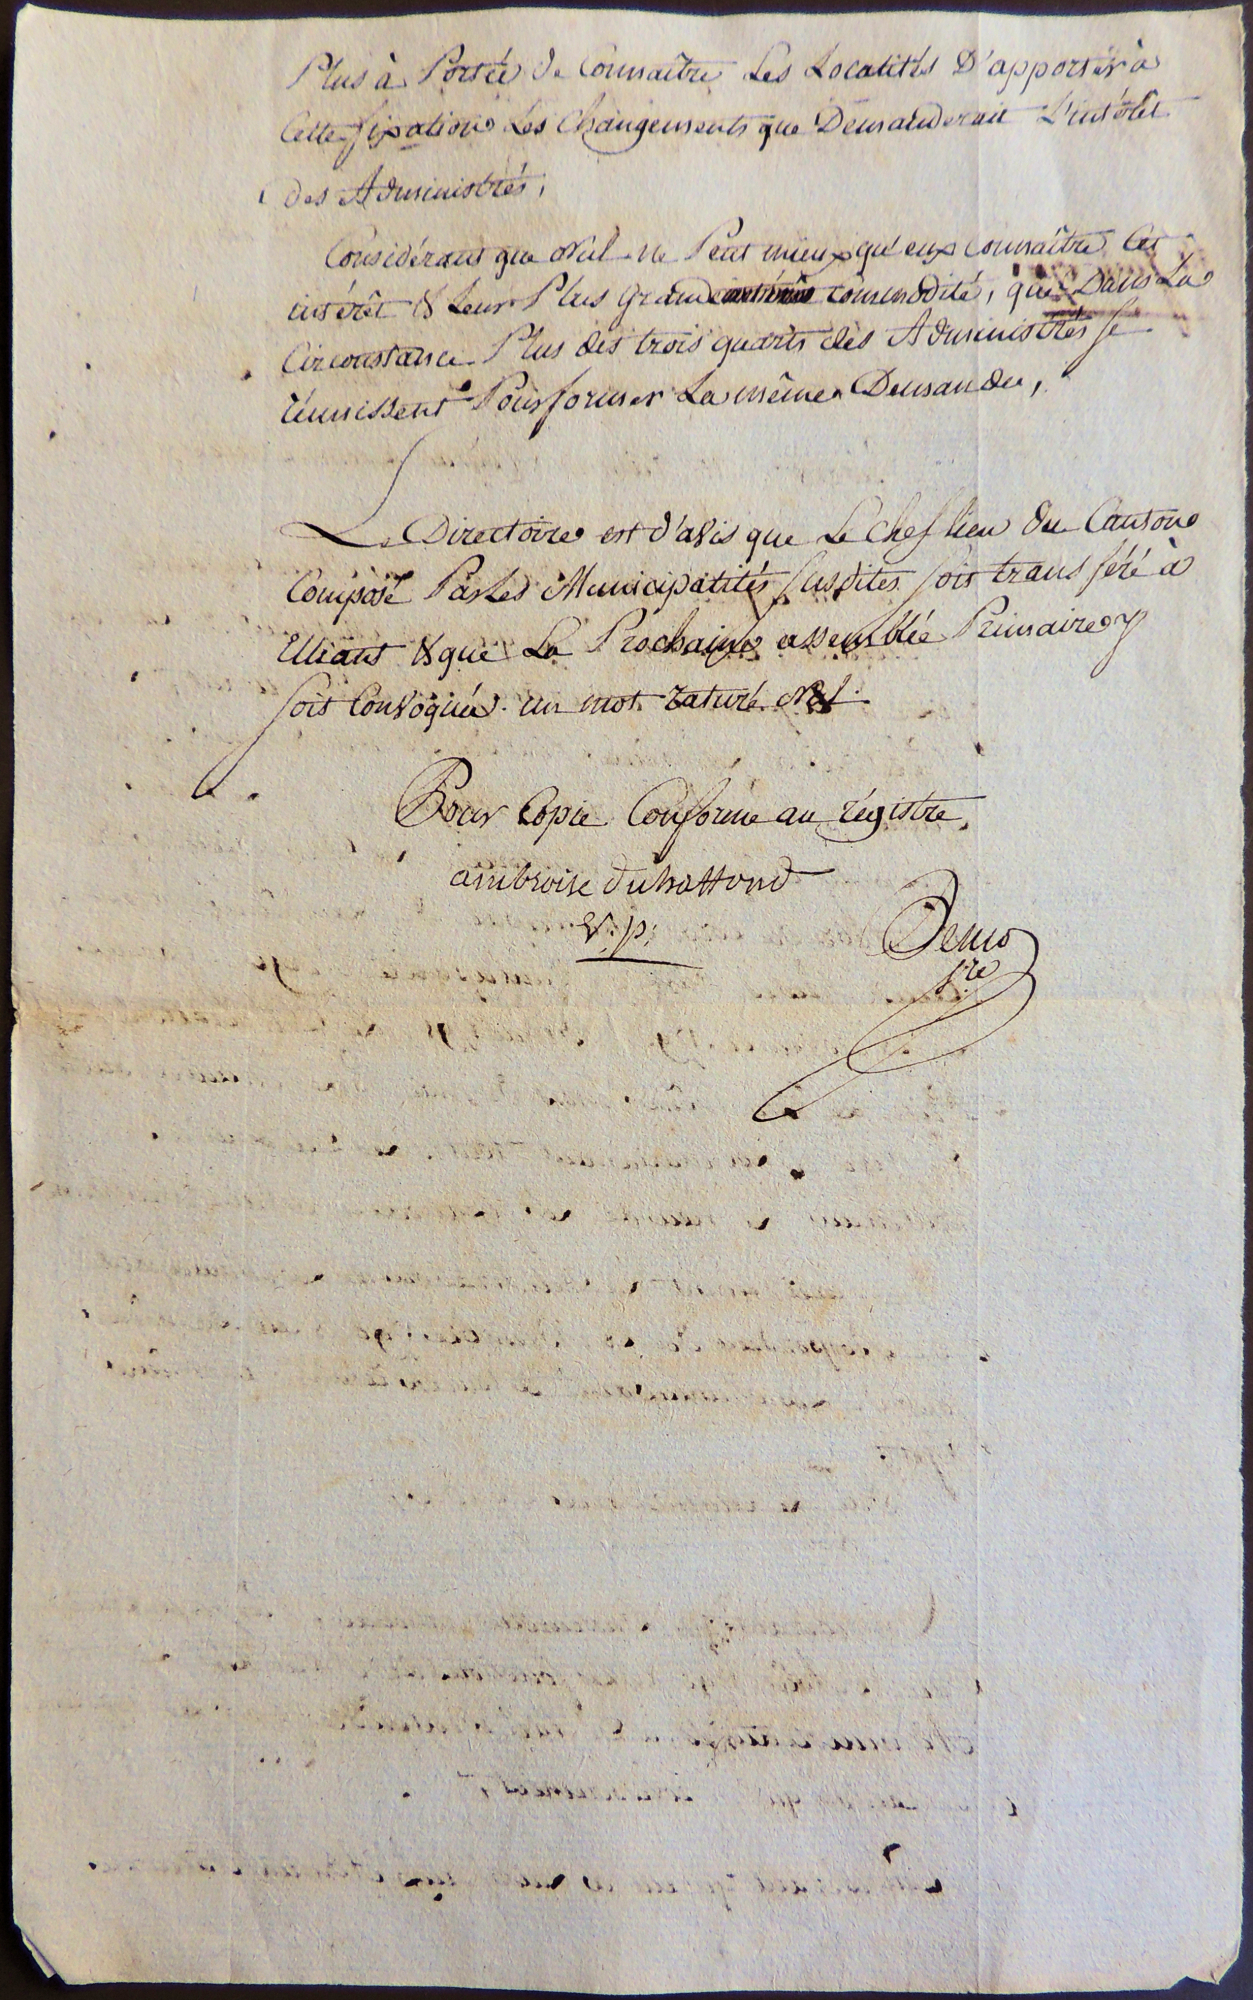 Plus à Portée de Connaître Les Localités D'apporter à
Cette fixation Les Changements que Demanderait L'intérêt
des Administrés,
Considérant que Nul ne Peut mieux qu'eux connaître Cet
intérêt & Leur Plus Grande commodité, que Dans La
Circonstance Plus des trois quarts des Administrés se
réunissent Pour former La même Demande,
Le Directoire est d'avis que Le Chef lieu du Canton
Composé Par Les Municipalités susdites soit transféré à
Elliant & que La Prochaine assemblée Primaire y
soit Convoquée. un mot raturé Nul.
Pour Copie Conforme au régistre
ambroise
V. p.